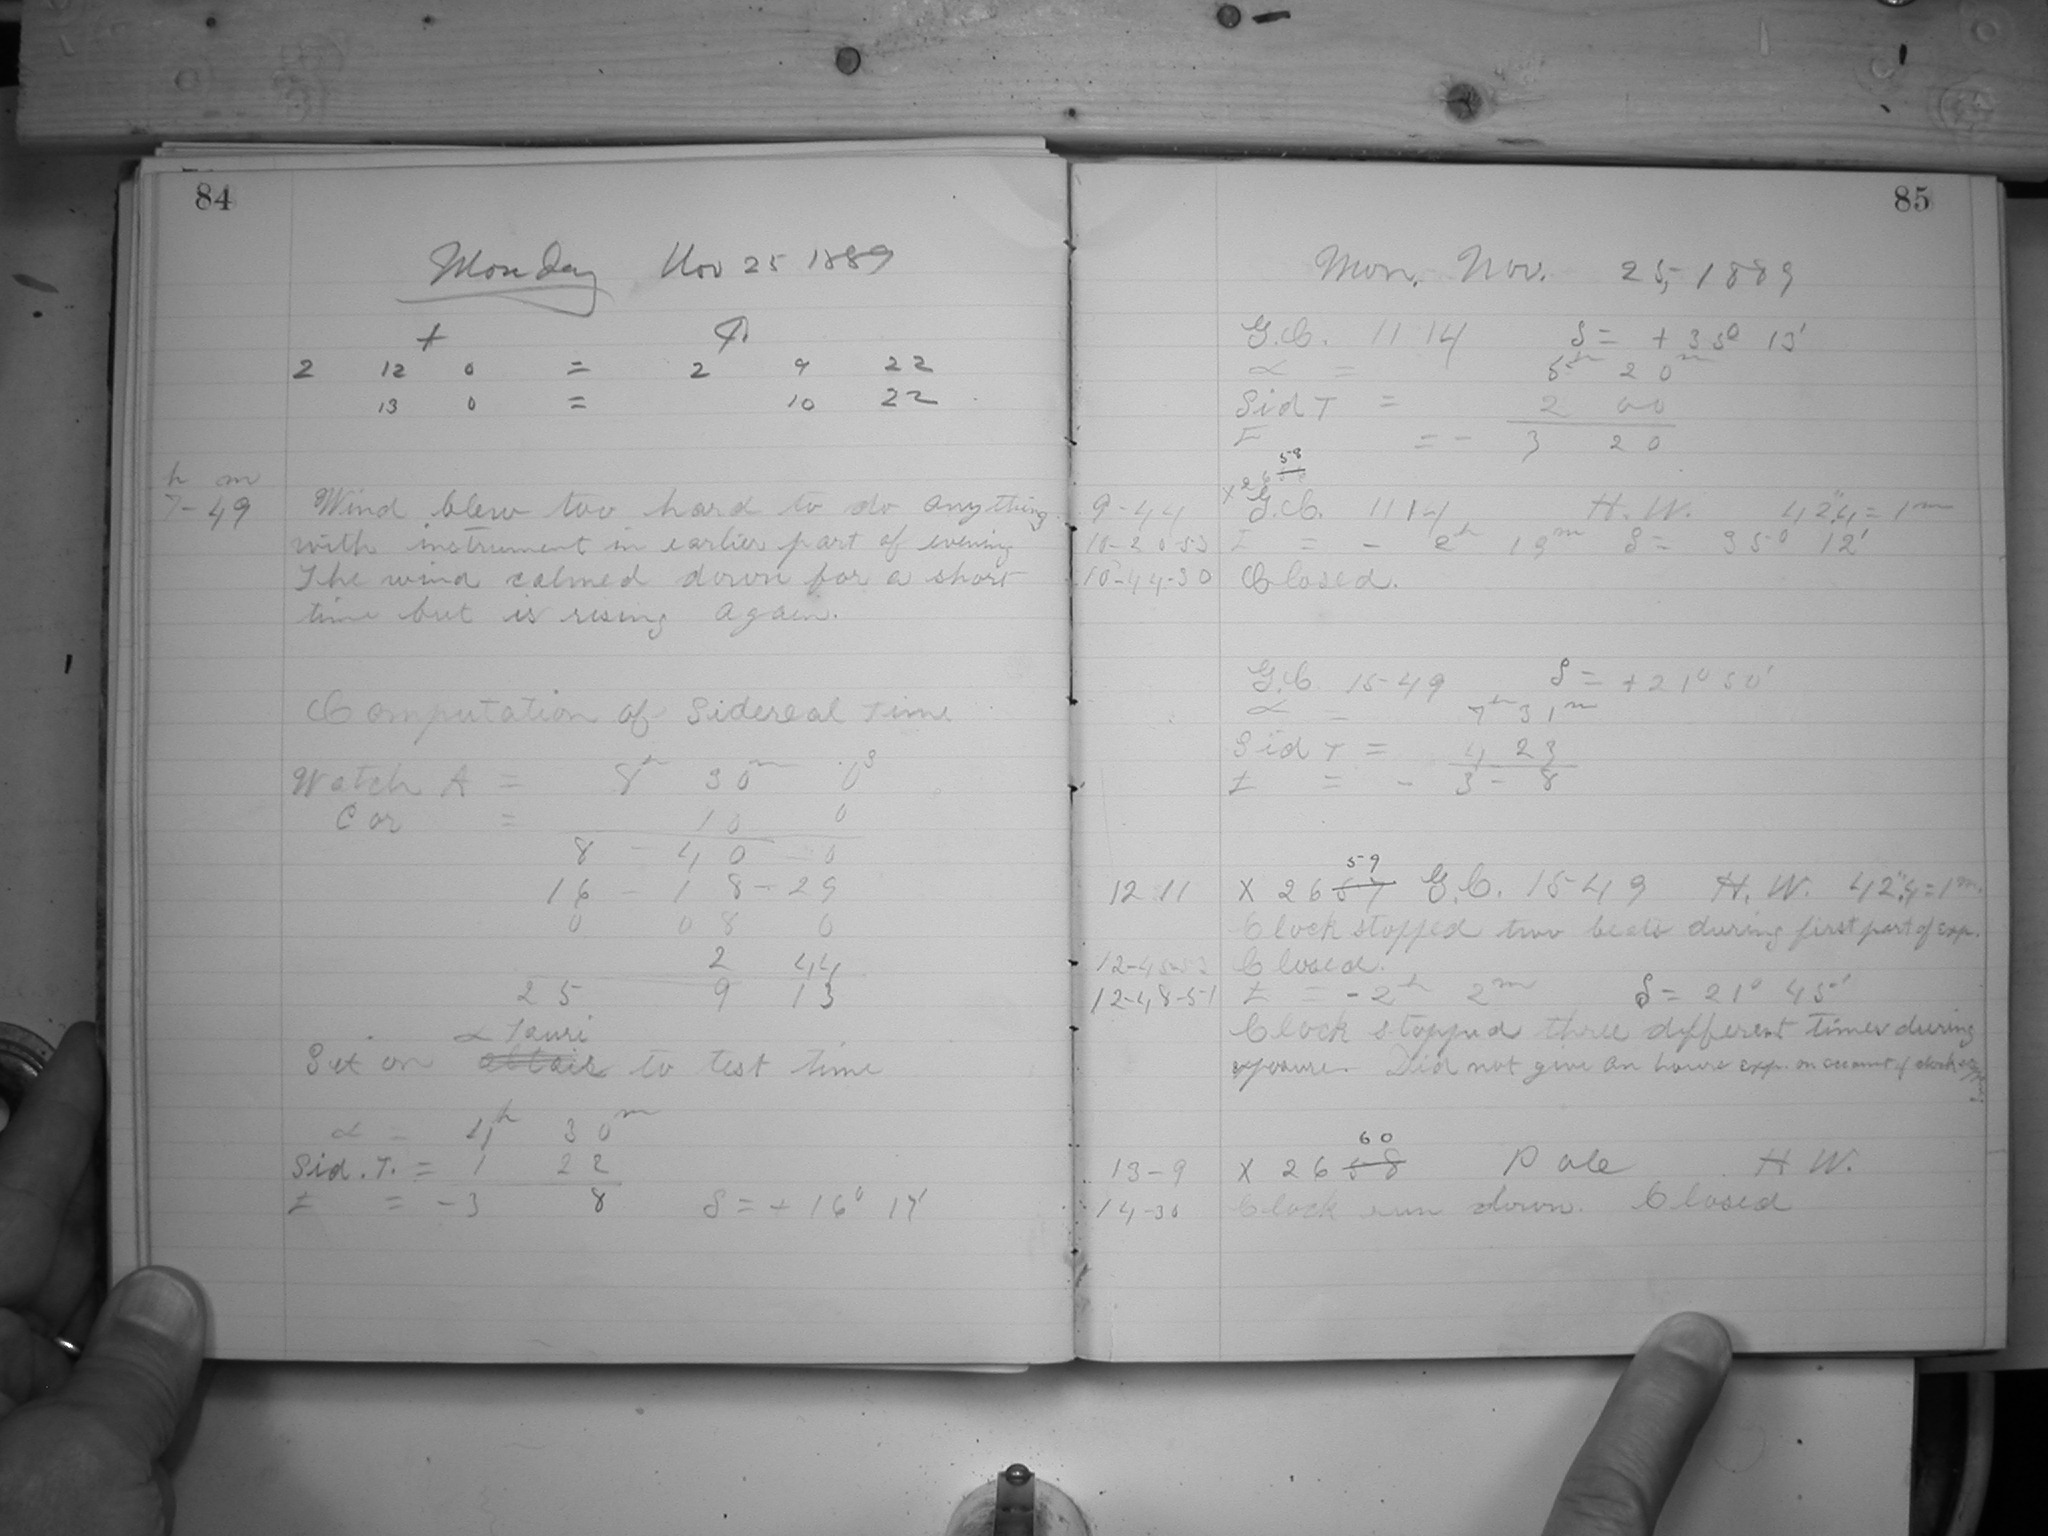 84
Monday Nov 25 1889
2 12 0 = 2 9 22
13 0 = 10 22
h m
7-49 Wind blew too hard to do anything
with instrument in earlier part of evening
The wind calmed down for a short
time but is rising again.
Computation of Sidereal Time
Watch A = 8h 30m 0s
Cor = 10 0
8 - 40 - 0
16 - 18 - 29
0 08 0
2 44
25 9 13
α Tauri
Set on altair to test time
α = 4h 30m
Sid. T. = 1 22
t = -3 8 δ = + 16° 17'
85
Mon. Nov. 25, 1889
G.C. 1114 δ = + 35° 13'
α = 5h 20m
Sid T = 2 00
t = - 3 20
58
9-44 G.C. 1114 H. W. 42".4 = 1m
10-20-53 t = - 2h 19m δ = 35° 12'
10-44-30 Closed.
G.C. 1549 δ = +21° 50'
α = 7h 31m
Sid T = 4 23
t = - 3 - 8
59
12 11 X 26 57 G.C. 1549 H. W. 42".4 = 1m.
Clock stopped two beats during first part of exp.
12-45-53 Closed.
12-48-51 t = -2h 2m δ = 21° 45'
Clock stopped three different times during
exposure. Did not give an hours exp. on account of clock stopping
60
13-9 X 26 58 Pole H W.
14-30 Clock run down. Closed